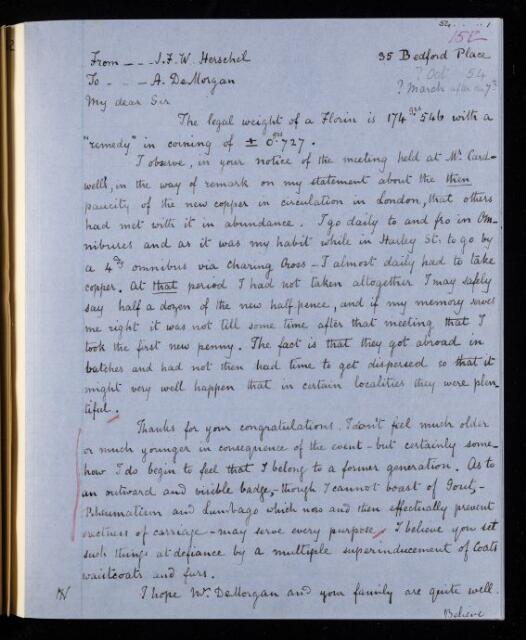 54 . . . . . 1
152
From - - - J.F.W. Herschel 35 Bedford Place
To - - - A. DeMorgan ? Oct 54
? March after the 7th
My dear Sir
The legal weight of a Florin is 174.grs 546 with a
"remedy" in coining of ± 0.grs 727.
I observe, in your notice of the meeting held at Mr. Card-
wells, in the way of remark on my statement about the then
paucity of the new copper in circulation in London, that others
had met with it in abundance. I go daily to and fro in Om-
nibuses and as it was my habit while in Harley St. to go by
a 4dy omnibus via Charing Cross - I almost daily had to take
copper. At that period I had not taken altogether I may safely
say half a dozen of the new half pence, and if my memory serves
me right it was not till some time after that meeting that I
took the first new penny. The fact is that they got abroad in
batches and had not then had time to get dispersed so that it
might very well happen that in certain localities they were plen
tiful.
Thanks for your congratulations. I don't feel much older
or much younger in consequence of the event - but certainly some-
how I do begin to feel that I belong to a former generation. As to
an outward and visible badge, - though I cannot boast of Gout, -
Rheumatism and Lumbago which now and then effectually prevent
erectness of carriage - may serve every purpose. I believe you set
such things at defiance by a multiple superinducement of Coats
waistcoats and furs.
I hope Mrs. DeMorgan and your family are quite well.
Believe